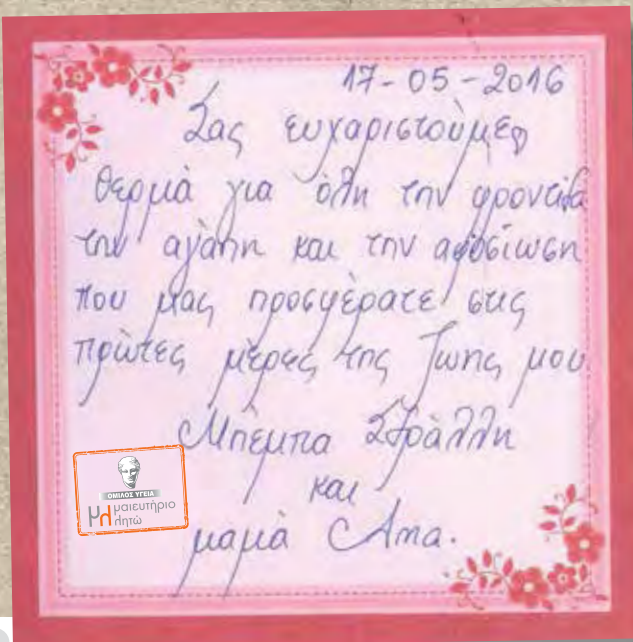 17-05-2016
Σας ευχαριστούμε
θερμά για όλη την φροντίδα
την αγάπη και την αφοσίωση
που μας προσφέρατε στις
πρώτες μέρες της ζωής μου
Μπέμπα
και
μαμά Anna.
ΟΜΙΛΟΣ ΥΓΕΙΑ
μαιευτήριο
λητώ